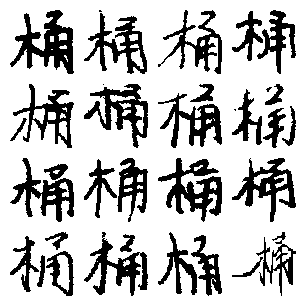 桶桶桶桶
桶桶桶桶
桶桶桶桶
桶桶桶桶